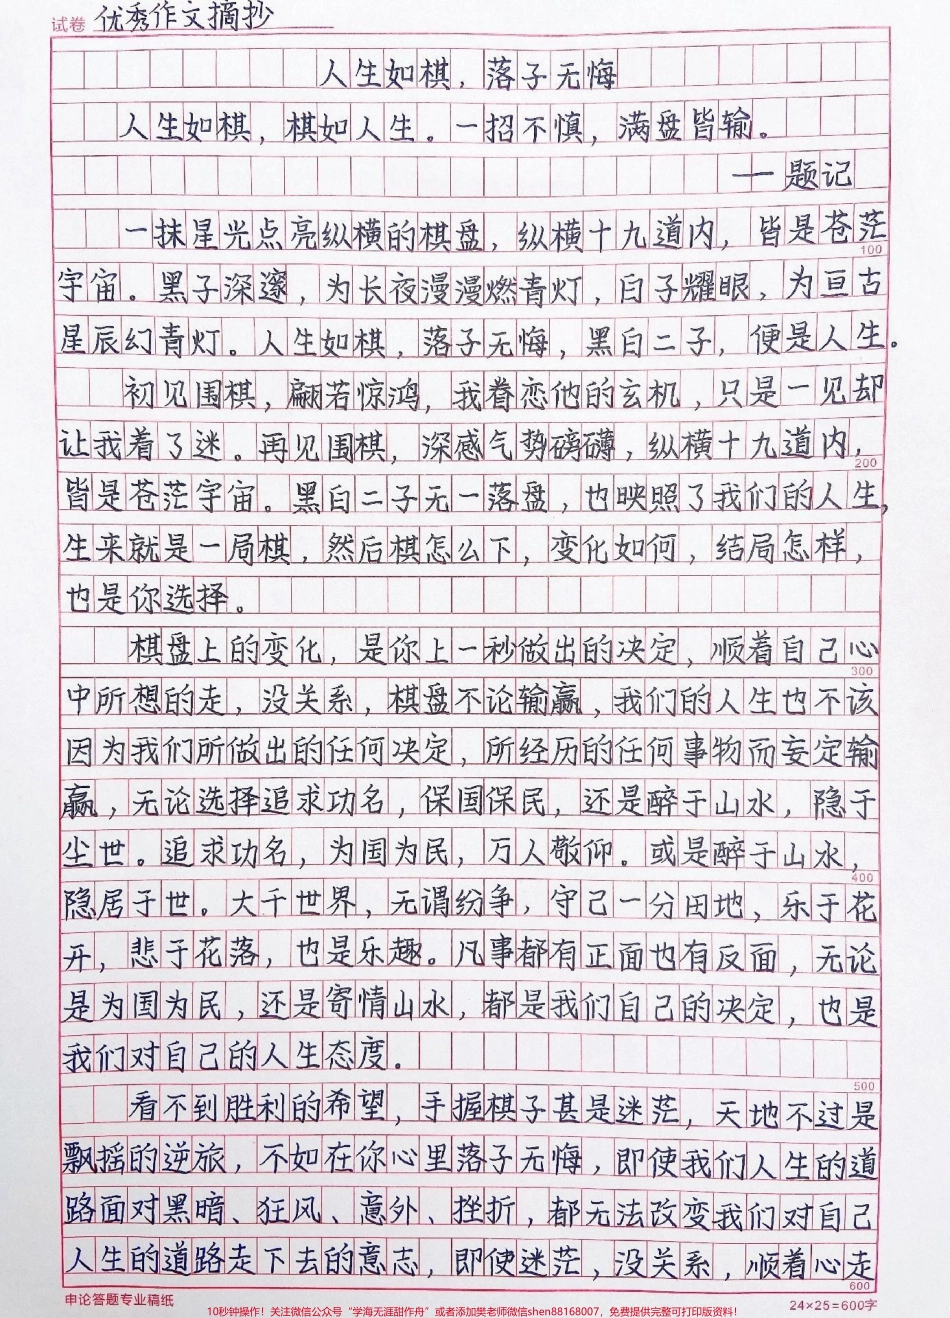 试卷 优秀作文摘抄
人生如棋，落子无悔
人生如棋，棋如人生。一招不慎，满盘皆输。
——题记
一抹星光点亮纵横的棋盘，纵横十九道内，皆是苍茫
100
宇宙。黑子深邃，为长夜漫漫燃青灯，白子耀眼，为亘古
星辰幻青灯。人生如棋，落子无悔，黑白二子，便是人生。
初见围棋，翩若惊鸿，我眷恋他的玄机，只是一见却
让我着了迷。再见围棋，深感气势磅礴，纵横十九道内，
200
皆是苍茫宇宙。黑白二子无一落盘，也映照了我们的人生，
生来就是一局棋，然后棋怎么下，变化如何，结局怎样，
也是你选择。
棋盘上的变化，是你上一秒做出的决定，顺着自己心
300
中所想的走，没关系，棋盘不论输赢，我们的人生也不该
因为我们所做出的任何决定，所经历的任何事物而妄定输
赢，无论选择追求功名，保国保民，还是醉于山水，隐于
尘世。追求功名，为国为民，万人敬仰。或是醉于山水，
400
隐居于世。大千世界，无谓纷争，守己一分田地，乐于花
开，悲于花落，也是乐趣。凡事都有正面也有反面，无论
是为国为民，还是寄情山水，都是我们自己的决定，也是
我们对自己的人生态度。
500
看不到胜利的希望，手握棋子甚是迷茫，天地不过是
飘摇的逆旅，不如在你心里落子无悔，即使我们人生的道
路面对黑暗、狂风、意外、挫折，都无法改变我们对自己
人生的道路走下去的意志，即使迷茫，没关系，顺着心走
600
申论答题专业稿纸
24×25=600字
10秒钟操作！关注微信公众号“学海无涯甜作舟”或者添加樊老师微信shen88168007，免费提供完整可打印版资料！